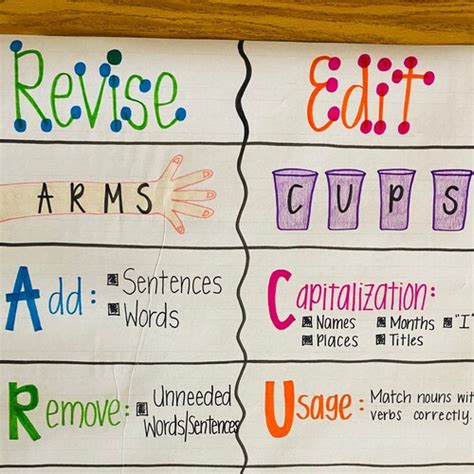 Revise
Edit
ARMS
CUPS
Add:
Sentences
Words
Capitalization:
Names Months "I"
Places Titles
Remove:
Unneeded
Words/Sentences
Usage: Match nouns
verbs correctly.